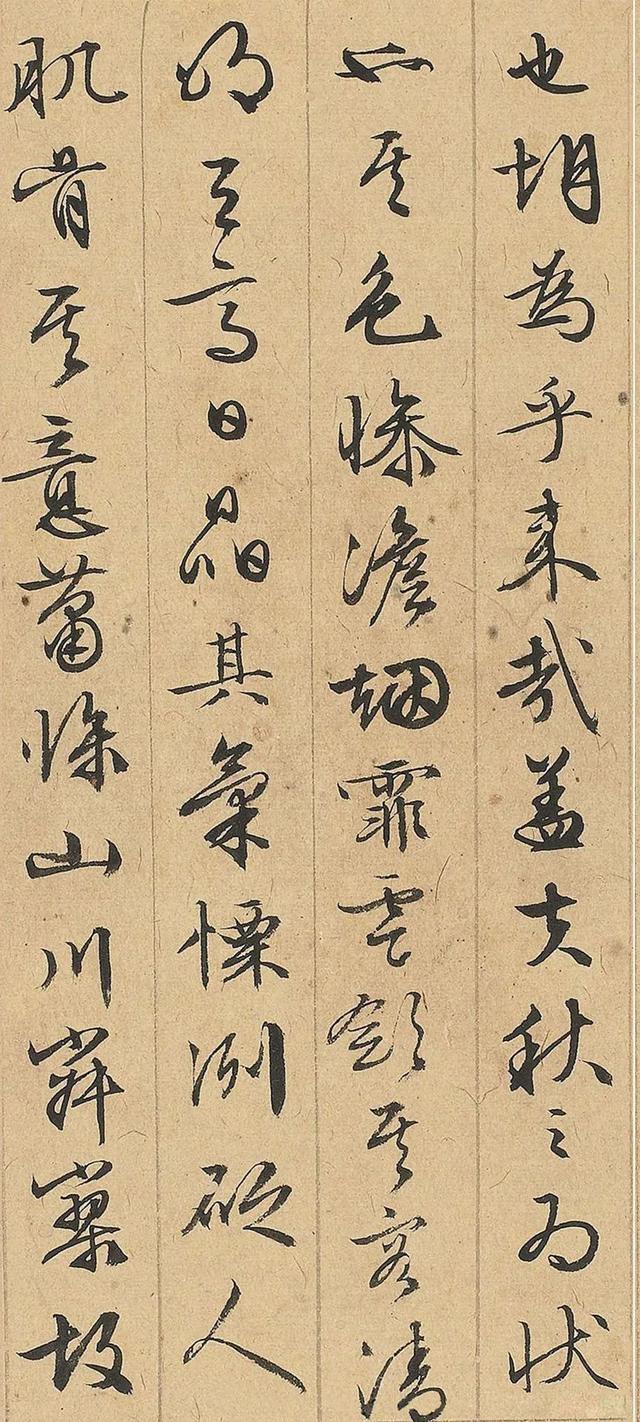 也胡為乎来哉盖夫秋之為状
也其色慘澹烟霏雲斂其容清
明天高日晶其氣慄冽砭人
肌骨其意蕭條山川寂寥故